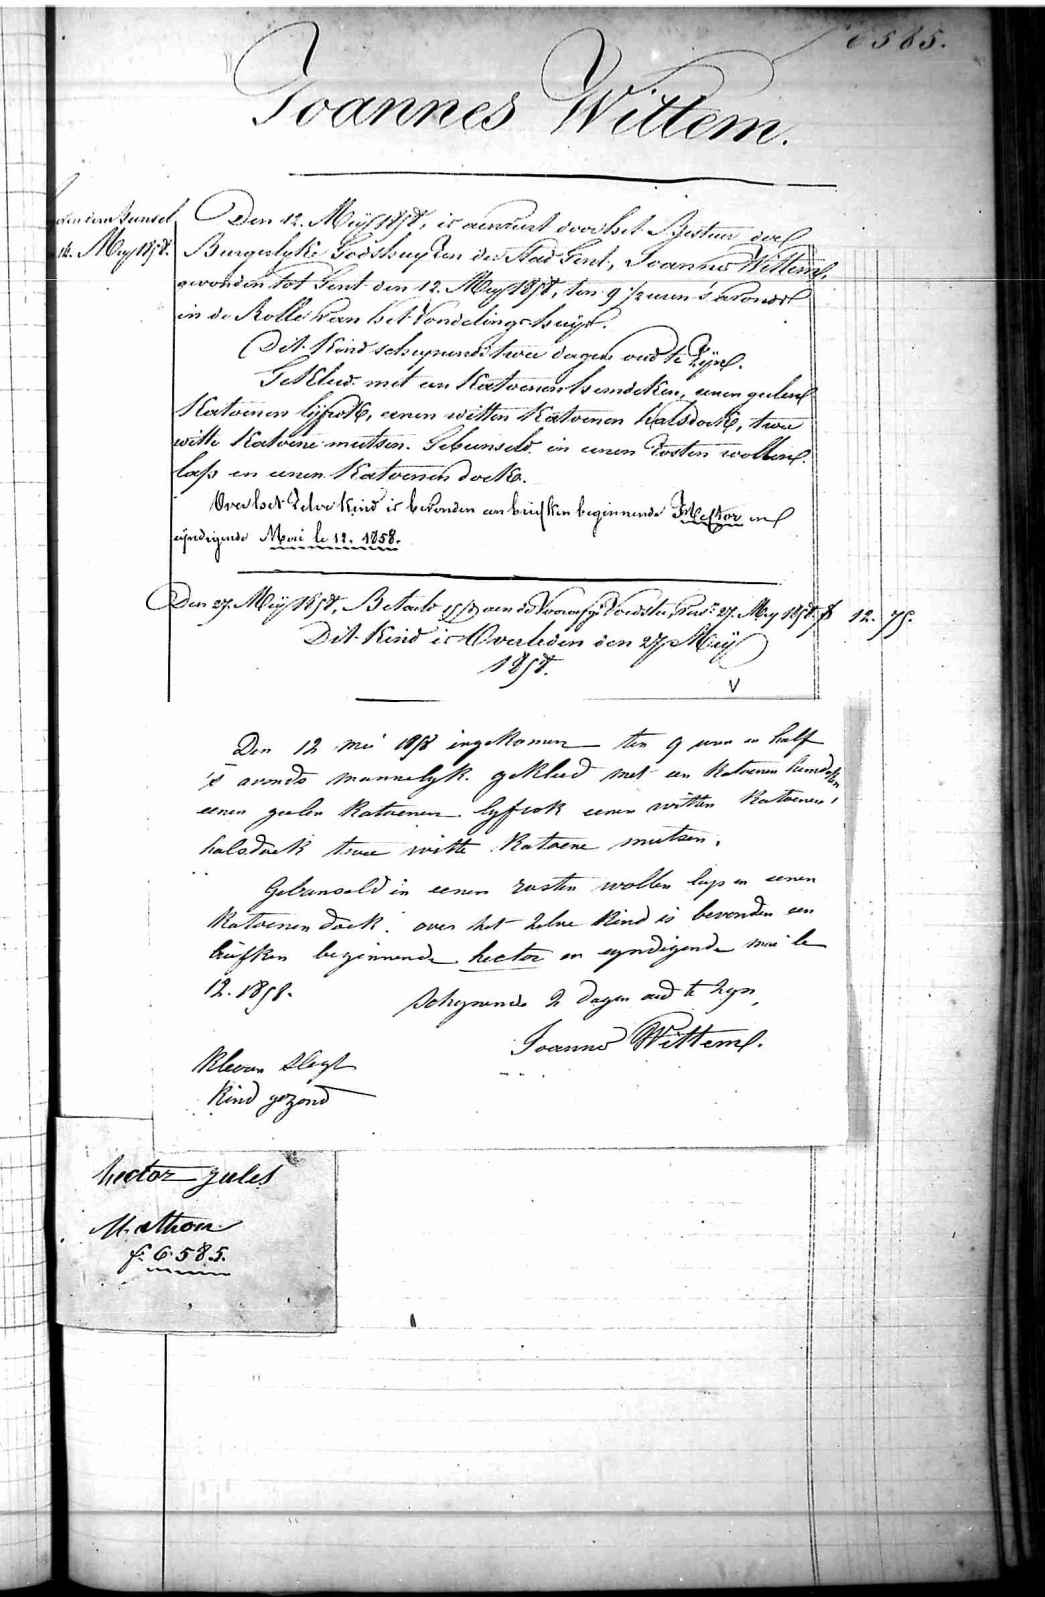 6585.
Joannes Wittem.
12. Meij 1858.
Den 12. Meij 1858, is aenveird door het Bestuer der
Burgerlyke Godshuyzen der Stad Gent, Joannes Wittem,
gevonden tot Gent den 12. Meij 1858, ten 9 ½ uren 's avonds
in de Rolle van het Vondelingshuys.
Dit Kind schynende twee dagen oud te zijn.
Gekleed met een Katoenen hemdeken, eenen geelen
Katoenen lijfrok, eenen witten Katoenen halsdoek, twee
witte Katoene mutsen. Gebunseld in eenen rosten wollen
laps en eenen Katoenen doek.
Over het zelve Kind is bevonden een briefken beginnende Hector en
eijndigende Mai le 12. 1858.
Den 27. Meij 1858, Betaelt aen de Voedster 27. Mey 1858, f 12. 75.
Dit Kind is Overleden den 27 Meij
1858.
V
Den 12 mei 1858 ingekomen ten 9 uren en half
's avonds mannelyk. gekleed met een Katoenen hemdeken
eenen geelen Katoenen lyfrok eenen witten Katoenen
halsdoek twee witte Katoene mutsen.
Gebunseld in eenen rosten wollen laps en eenen
Katoenen doek. over het zelve Kind is bevonden een
briefken beginnende hector en eyndigende mai le
12. 1858.
schynende 2 dagen oud te zyn,
Joannes Wittem.
Kleeren slegt
Kind gezond
hector jules
Mathon
f. 6585.